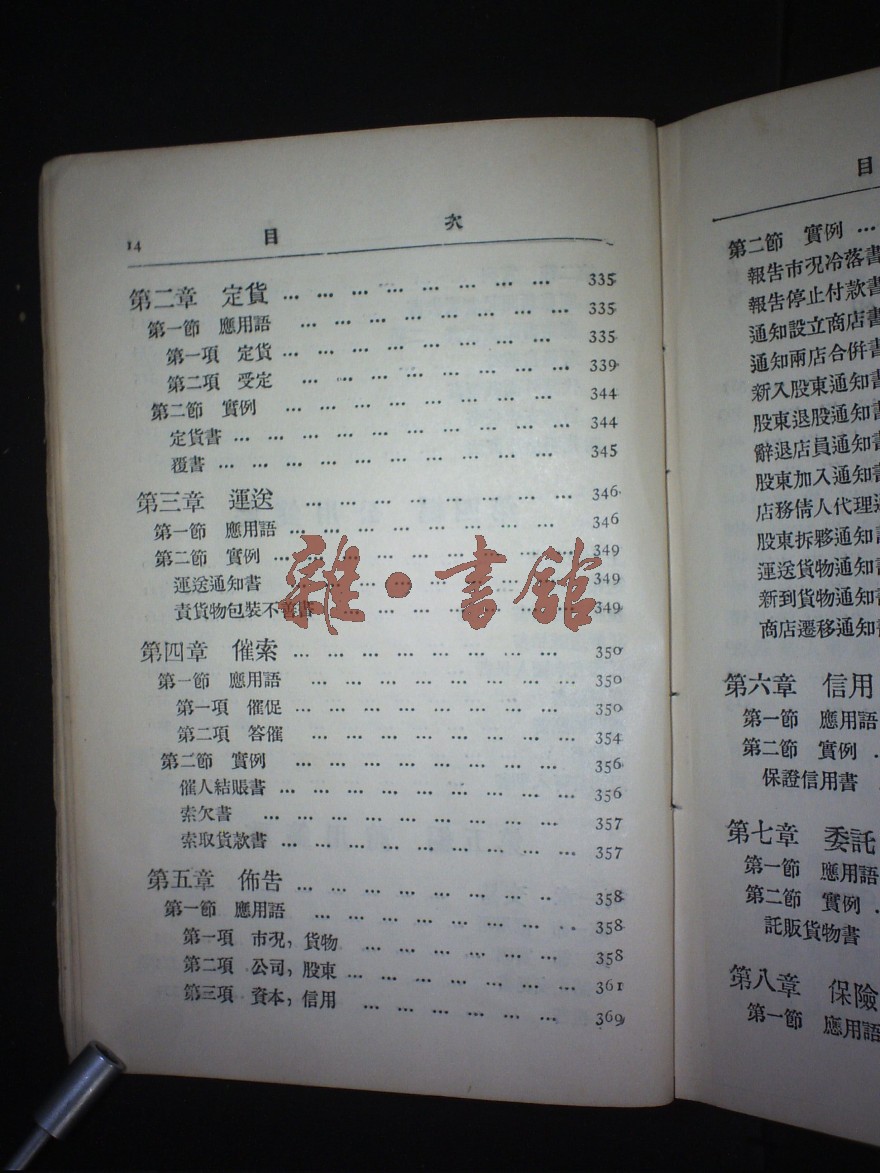 14 目 次
第二章 定貨 … … … … … … … … 335
第一節 應用語 … … … … … … … 335
第一項 定貨 … … … … … … … … 335
第二項 受定 … … … … … … … 339
第二節 實例 … … … … … … … … 344
定貨書 … … … … … … … … … 344
覆書 … … … … … … … … … 345
第三章 運送 … … … … … … … 346
第一節 應用語 … … … … … … … 346
第二節 實例 … … … … … … … … 349
運送通知書 … … … … … … … 349
責貨物包裝不善書 … … … … … … 349
第四章 催索 … … … … … … … … 350
第一節 應用語 … … … … … … … 350
第一項 催促 … … … … … … … … 350
第二項 答催 … … … … … … … 354
第二節 實例 … … … … … … … … 356
催人結賬書 … … … … … … … … 356
索欠書 … … … … … … … … … 357
索取貨款書 … … … … … … … … 357
第五章 佈告 … … … … … … … … 358
第一節 應用語 … … … … … … … 358
第一項 市況，貨物 … … … … … … 358
第二項 公司，股東 … … … … … … 361
第三項 資本，信用 … … … … … … 369
雜·書館
目
第二節 實例 …
報告市況冷落書
報告停止付款書
通知設立商店書
通知兩店合併書
新入股東通知書
股東退股通知書
辭退店員通知書
股東加入通知書
店務倩人代理
股東拆夥通知
運送貨物通知
新到貨物通知
商店遷移通知
第六章 信用
第一節 應用語
第二節 實例
保證信用書
第七章 委託
第一節 應用語
第二節 實例
託販貨物書
第八章 保險
第一節 應用語